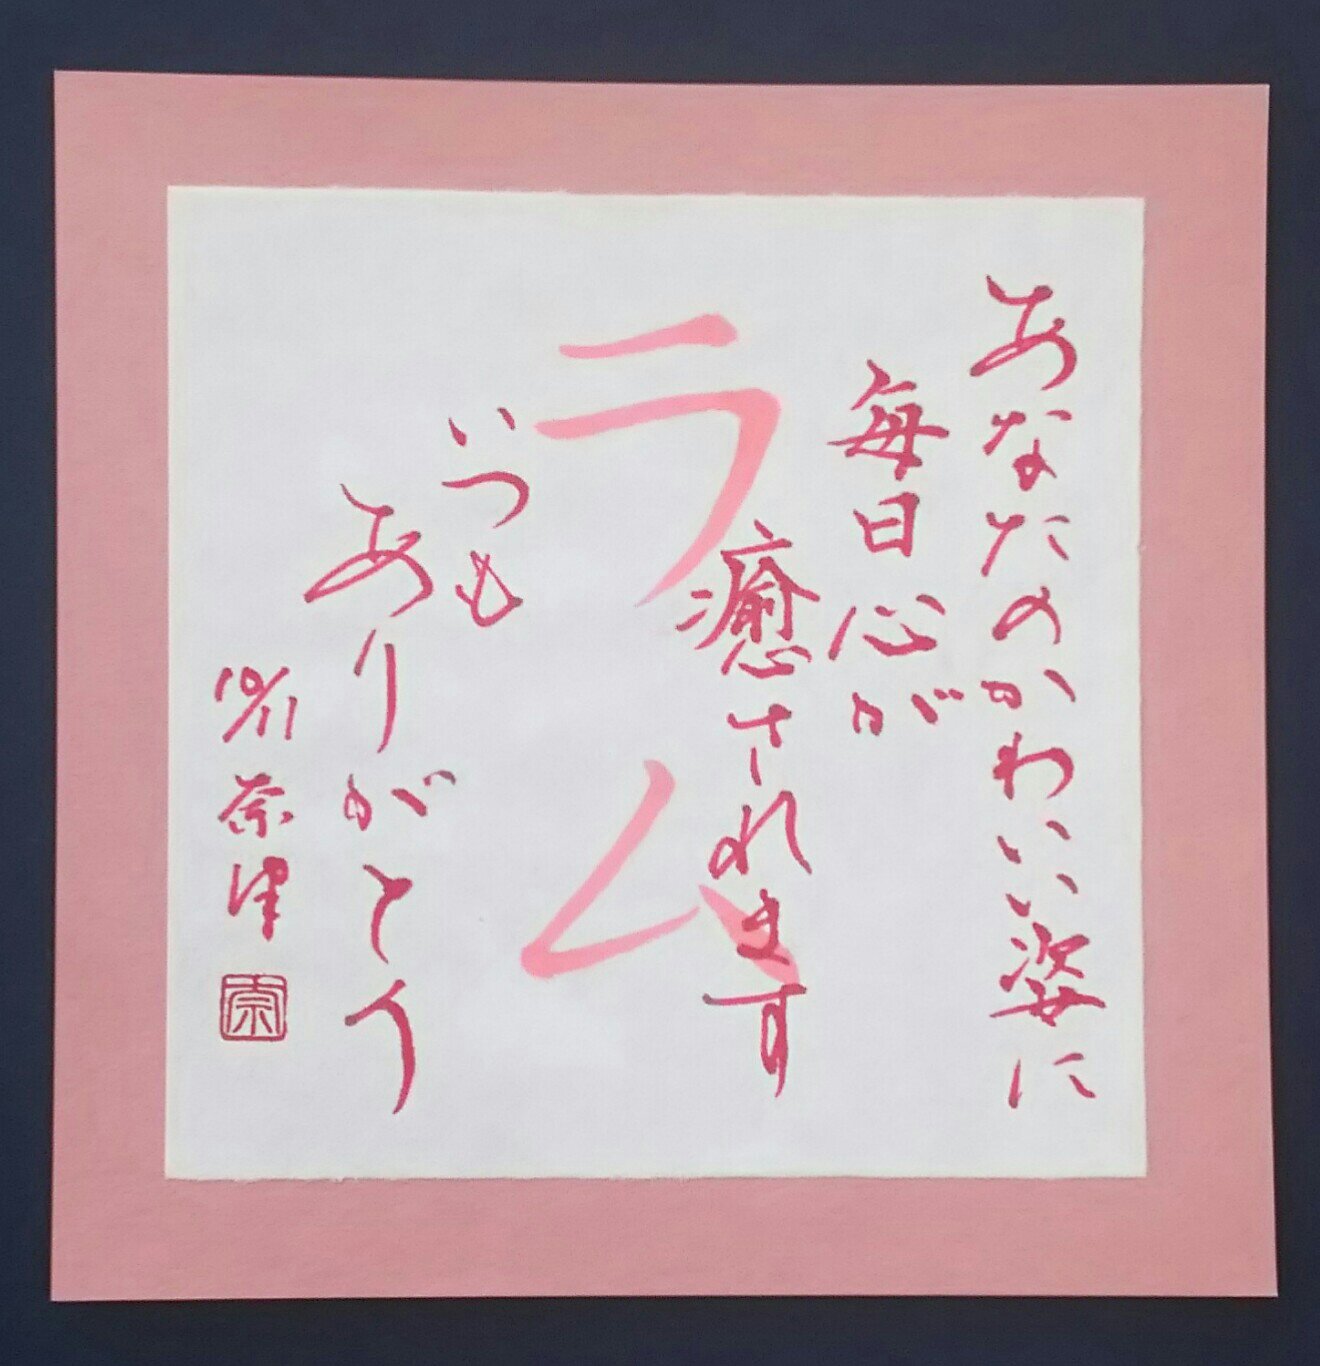 あなたのかわいい姿に
毎日心が
癒されます
ラム
いつも
ありがとう
10/11 奈津
奈